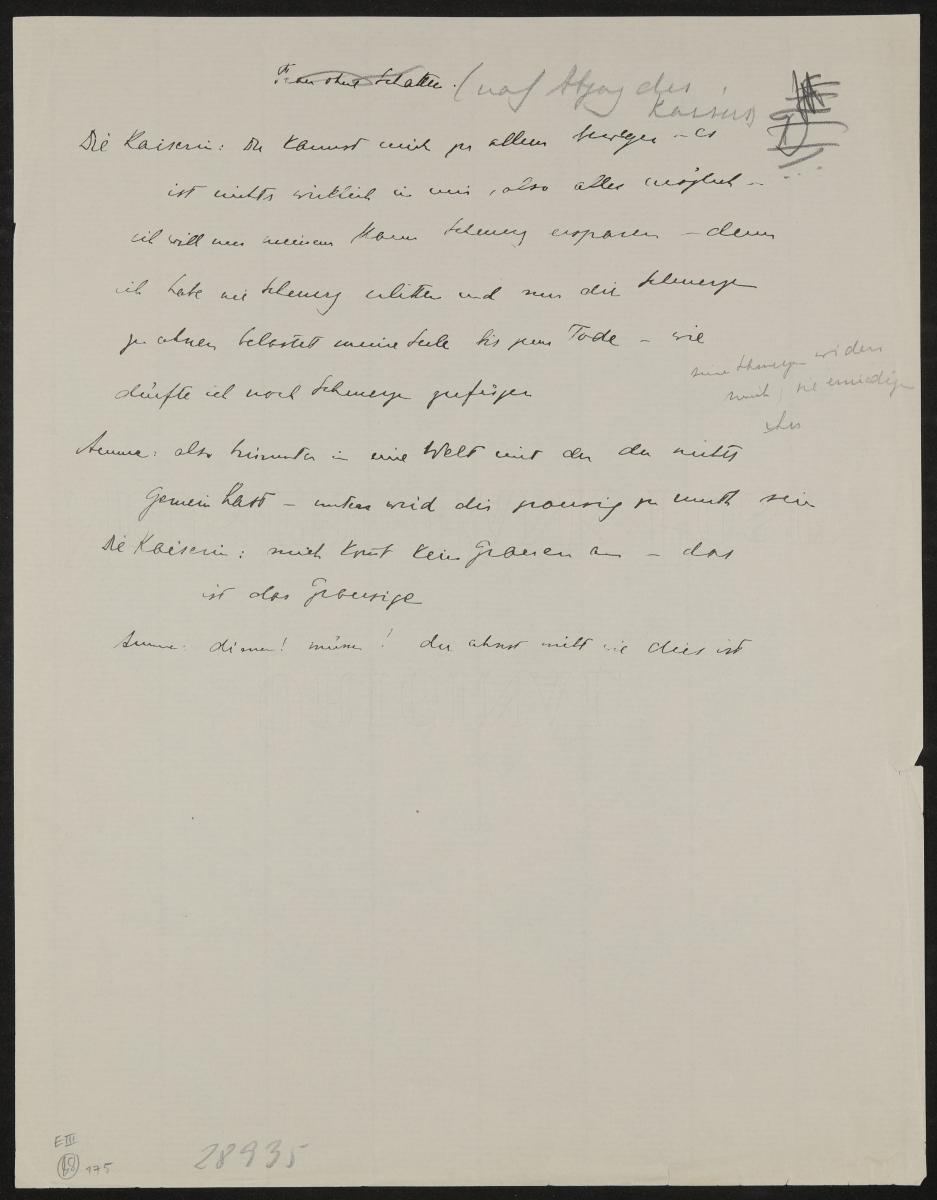 Frau ohne Schatten. (nach Abgang des
Kaisers)
Die Kaiserin: Du kannst mich zu allem bewegen – es
ist nichts wirklich in mir, also alles möglich –
ich will nur meinem Mann Schmerz ersparen – denn
ich habe nie Schmerz erlitten und nur die Schmerzen
zu ahnen belastet meine Seele bis zum Tode – wie
dürfte ich noch Schmerzen zufügen
Schmerzen widern
mich, sie erniedrigen
Amme: also hinunter in eine Welt mit der du nichts
gemein hast – unten wird dir grausig zu muth sein
Die Kaiserin: mich komt kein Grauen an – das
ist das Grausige
Amme: dienen! müssen! du ahnst nicht wie dies ist
E III
175
28935